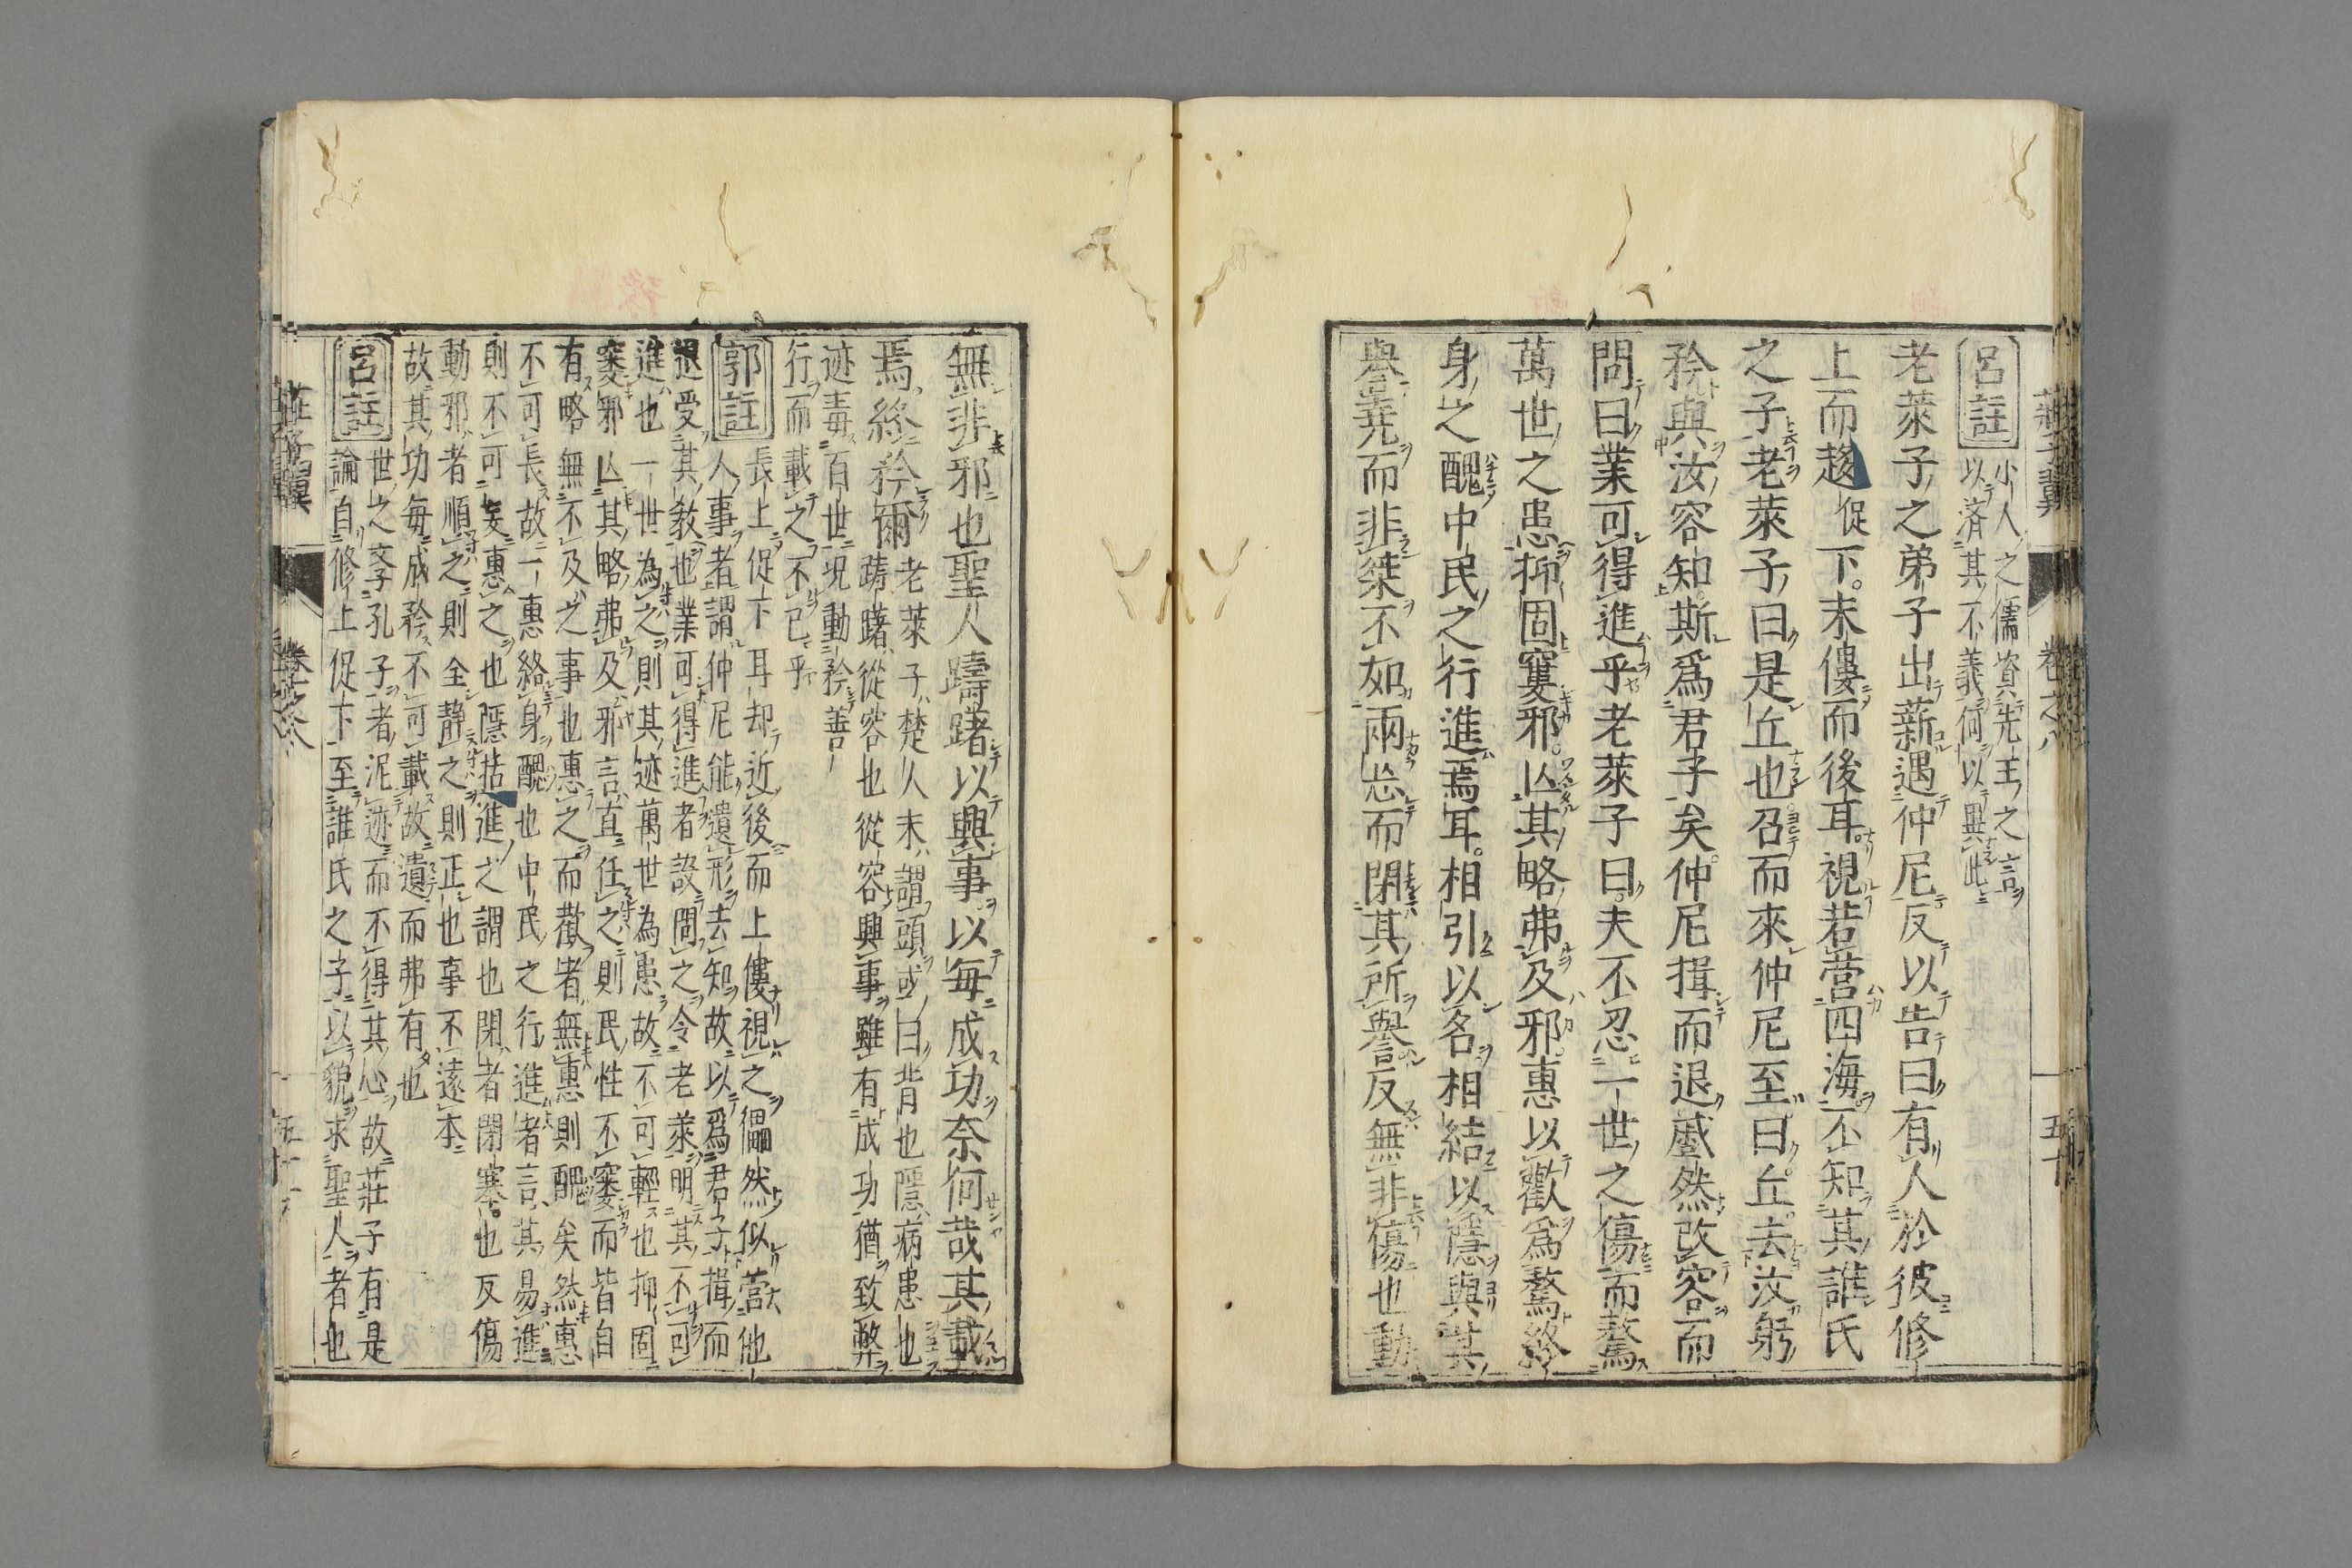 莊子翼 卷之八 五十
呂註 小人之儒資先王之言
以濟其不義何以異此
老萊子之弟子出薪遇仲尼反以告曰有人於彼修
上而趍促下末僂而後耳視若營四海不知其誰氏
之子老萊子曰是丘也召而來仲尼至曰丘去汝躬
矜與汝容知斯爲君子矣仲尼揖而退蹙然改容而
問曰業可得進乎老萊子曰夫不忍一世之傷而驁
萬世之患抑固窶邪亾其略弗及邪惠以歡爲驁終
身之醜中民之行進焉耳相引以名相結以隱與其
譽堯而非桀不如兩忘而閉其所譽反無非傷也動
無非邪也聖人躊躇以興事以每成功奈何哉其載
焉終矜爾
老萊子楚人末謂頭或曰背也隱病患也
躊躇從容也從容興事雖有成功猶致弊
迹毒百世況動矜善
行而載之不已乎
郭註 長上促下耳却近後而上僂視之儡然似營他
人事者謂仲尼能遺形去知故以爲君子揖而
退受其敎也業可得進者設問之令老萊明其不可
進也一世為之則其迹萬世為患故不可輕也抑固
窶邪亾其略弗及邪言直任之則民性不窶而皆自
有略無不及之事也惠之而歡者無惠則醜矣然惠
不可長故一惠終身醜也中民之行進者言其易進
則不可妄惠之也隱括進之謂也閉者閉塞也反傷
動邪者順之則全靜之則正也事不遠本
故其功每成矜不可載故遺而弗有也
呂註 世之李孔子者泥迹而不得其心故莊子有是
論自修上促下至誰氏之子以貌求聖人者也
莊子翼 卷之八 五十一